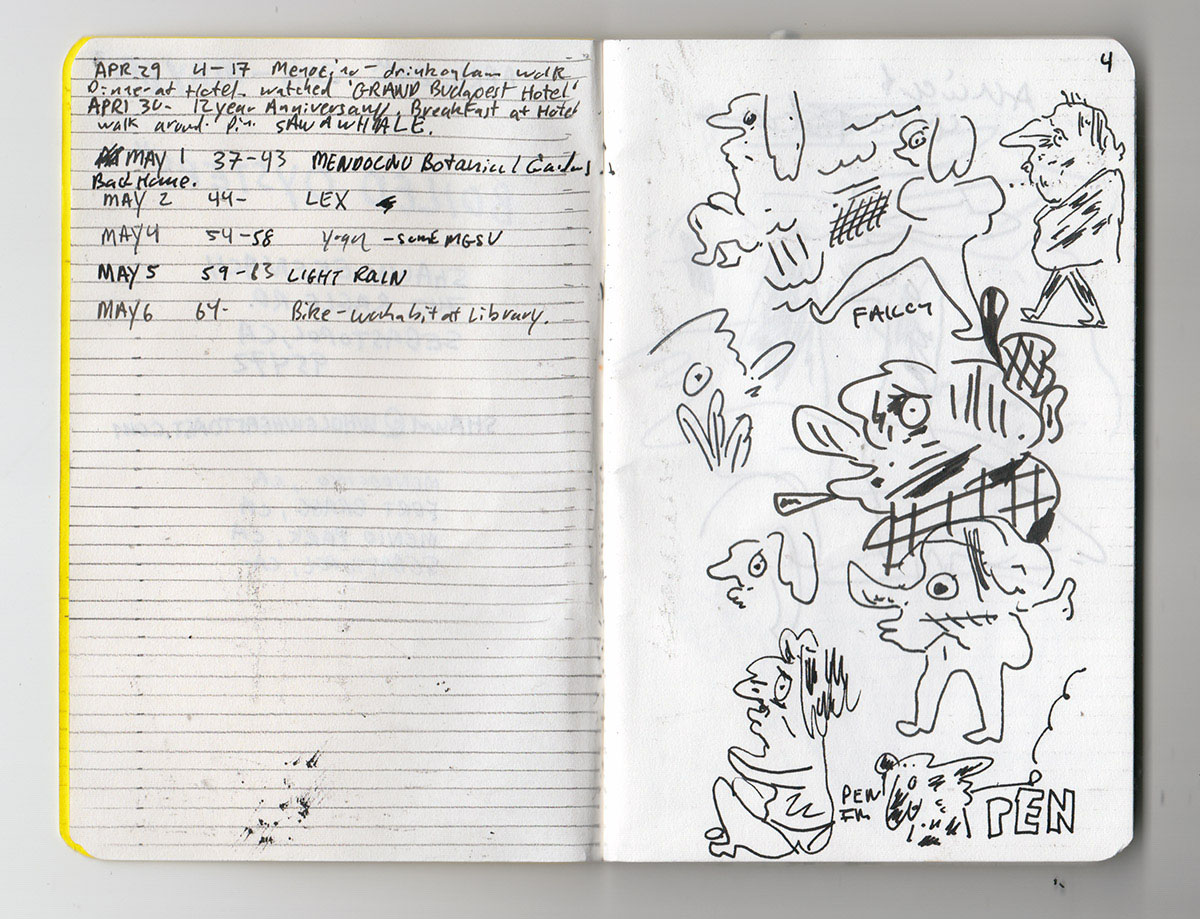 APR 29 4-17 Mendocino - drink walk
Dinner at Hotel - watched 'GRAND Budapest Hotel'
APRI 30 - 12 year Anniversary, Breakfast at Hotel
walk around SAW A WHALE.
MAY 1 37-43 MENDOCINO Botanical Gardens
Back Home.
MAY 2 44- LEX
MAY 4 54-58 Yoga - some MGSV
MAY 5 59-63 LIGHT RAIN
MAY 6 64- Bike - at Library.
4
PEN
PEN